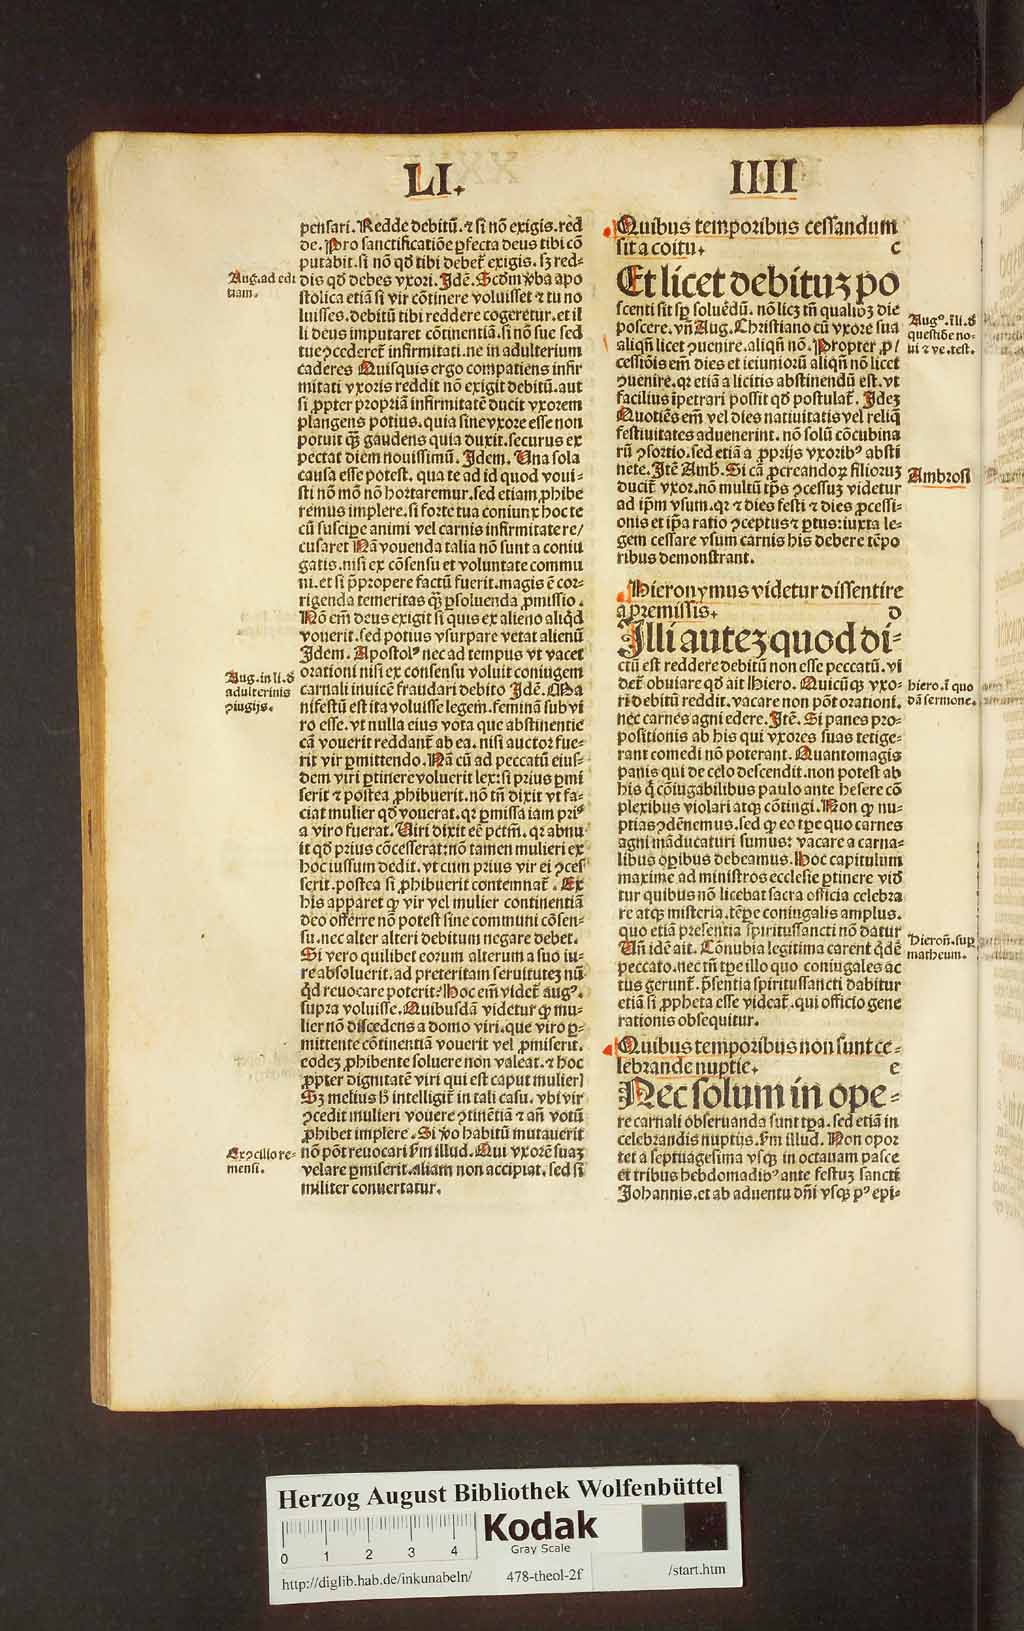 LI. IIII
pensari. Redde debitū. ⁊ si nō exigis. red
de. Pro sanctificatiōe ꝑfecta deus tibi cō
putabit. si nō qd̄ tibi debet̄ exigis. sꝫ red-
dis qd̄ debes vxori. Idē. Scd̄m v̄ba apo
stolica etiā si vir cōtinere voluisset ⁊ tu no
luisses. debitū tibi reddere cogeretur. et il
li deus imputaret cōtinentiā. si nō sue sed
tue ꝯcederet̄ infirmitati. ne in adulterium
caderes Quisquis ergo compatiens infir
mitati vxoris reddit nō exigit debitū. aut
si ꝓpter propriā infirmitatē ducit vxorem
plangens potius. quia sine vxore esse non
potuit qꝫ̄ gaudens quia duxit. securus ex
pectat diem nouissimū. Idem. Una sola
causa esse potest. qua te ad id quod voui-
sti nō mō nō hortaremur. sed etiam ꝓhibe
remus implere. si forte tua coniunx hoc te
cū suscipe animi vel carnis infirmitate re/
cusaret Nā vouenda talia nō sunt a coniu
gatis. nisi ex cōsensu et voluntate commu
ni. et si p̄propere factū fuerit. magis ē cor-
rigenda temeritas qꝫ̄ ꝑsoluenda ꝓmissio.
Nō em̄ deus exigit si quis ex alieno aliqd̄
vouerit. sed potius vsurpare vetat alienū
Idem. Apostolꝰ nec ad tempus vt vacet
orationi nisi ex consensu voluit coniugem
carnali inuicē fraudari debito Idē. Ma
nifestū est ita voluisse legem. feminā sub vi
ro esse. vt nulla eius vota que abstinentie
cā vouerit reddant̄ ab ea. nisi auctor fue-
rit vir ꝑmittendo. Nā cū ad peccatū eius-
dem viri ꝑtinere voluerit lex: si prius ꝑmi
serit ⁊ postea ꝓhibuerit. nō tn̄ dixit vt fa-
ciat mulier qd̄ vouerat. qꝛ ꝑmissa iam priꝰ
a viro fuerat. Viri dixit eē pctm̄. qꝛ abnu
it qd̄ prius cōcesserat: nō tamen mulieri ex
hoc iussum dedit. vt cum prius vir ei ꝯces
serit. postea si ꝓhibuerit contemnat̄. Ex
his apparet ꝙ vir vel mulier continentiā
deo offerre nō potest sine communi cōsen-
su. nec alter alteri debitum negare debet.
Si vero quilibet eorum alterum a suo iu-
re absoluerit. ad preteritam seruituteꝫ nū
qd̄ reuocare poterit? Hoc em̄ videt̄ augꝰ.
supra voluisse. Quibusdā videtur ꝙ mu-
lier nō discedens a domo viri. que viro ꝑ-
mittente cōtinentiā vouerit vel ꝓmiserit.
eodeꝫ ꝓhibente soluere non valeat. ⁊ hoc
ꝓpter dignitatē viri qui est caput mulierꝭ
Sꝫ melius h̄ intelligit̄ in tali casu. vbi vir
ꝯcedit mulieri vouere ꝯtinētiā ⁊ an̄ votū
ꝓhibet implere. Si v̄o habitū mutauerit
nō pōt reuocari s̄m illud. Qui vxorē suaꝫ
velare ꝑmiserit. aliam non accipiat. sed si
militer conuertatur.
Aug. ad edi
tiam.
Aug. in li. d̄
adulterinis
ꝯiugijs.
Ex ꝯcilio re-
mensi.
Quibus temporibus cessandum
sit a coitu. c
Et licet debituꝫ po
scenti sit sꝑ soluēdū. nō licꝫ tn̄ qualibꝫ die
poscere. vn̄ Aug. Christiano cū vxore sua
aliqn̄ licet ꝯuenire. aliqn̄ nō. Propter ꝓ/
cessiōis em̄ dies et ieiuniorū aliqn̄ nō licet
ꝯuenire. qꝛ etiā a licitis abstinendū est. vt
facilius īpetrari possit qd̄ postulat̄. Ideꝫ
Quotiēs em̄ vel dies natiuitatis vel reliq̄
festiuitates aduenerint. nō solū cōcubina
rū ꝯsortio. sed etiā a ꝓprijs vxoribꝰ absti
nete. Itē Amb. Si cā ꝓcreandoꝝ filioruꝫ
ducit̄ vxor. nō multū tp̄s ꝯcessuꝫ videtur
ad ip̄m vsum. qꝛ ⁊ dies festi ⁊ dies ꝓcessi-
onis et ip̄a ratio ꝯceptus ⁊ ꝑtus: iuxta le-
gem cessare vsum carnis his debere tēpo
ribus demonstrant.
Hieronymus videtur dissentire
a premissis. D
Illi auteꝫ quod di-
ctū est reddere debitū non esse peccatū. vi
det̄ obuiare qd̄ ait Hiero. Quicūqꝫ vxo-
ri debitū reddit. vacare non pōt orationi.
nec carnes agni edere. Itē. Si panes pro-
positionis ab his qui vxores suas tetige-
rant comedi nō poterant. Quantomagis
panis qui de celo descendit. non potest ab
his q̄ cōiugabilibus paulo ante hesere cō
plexibus violari atqꝫ cōtingi. Non ꝙ nu-
ptias ꝯdēnemus. sed ꝙ eo tp̄e quo carnes
agni māducaturi sumus: vacare a carna-
libus oꝑibus debeamus. Hoc capitulum
maxime ad ministros ecclesie ꝑtinere vid̄
tur quibus nō licebat sacra officia celebra
re atqꝫ misteria. tēpe coniugalis amplus.
quo etiā presentia spiritussancti nō datur
Vn̄ idē ait. Cōnubia legitima carent qdē
peccato. nec tn̄ tp̄e illo quo coniugales ac
tus gerunt̄. p̄sentia spiritussancti dabitur
etiā si ꝓpheta esse videat̄. qui officio gene
rationis obsequitur.
Quibus temporibus non sunt ce-
lebrande nuptie. e
Nec solum in ope-
re carnali obseruanda sunt tp̄a. sed etiā in
celebrandis nuptijs. s̄m illud. Non opor
tet a septuagesima vsqꝫ in octauam pasce
et tribus hebdomadibꝰ ante festuꝫ sancti
Johannis. et ab aduentu dn̄i vsqꝫ pꝰ epi-
Augꝰ. ī li. d̄
questiōe no-
ui ⁊ ve. test.
Ambrosi
hiero. ī quo
dā sermone.
Hieron̄. suꝑ
matheum.
Herzog August Bibliothek Wolfenbüttel
0 1 2 3 4
Kodak
Gray Scale
http://diglib.hab.de/inkunabeln/ 478-theol-2f /start.htm